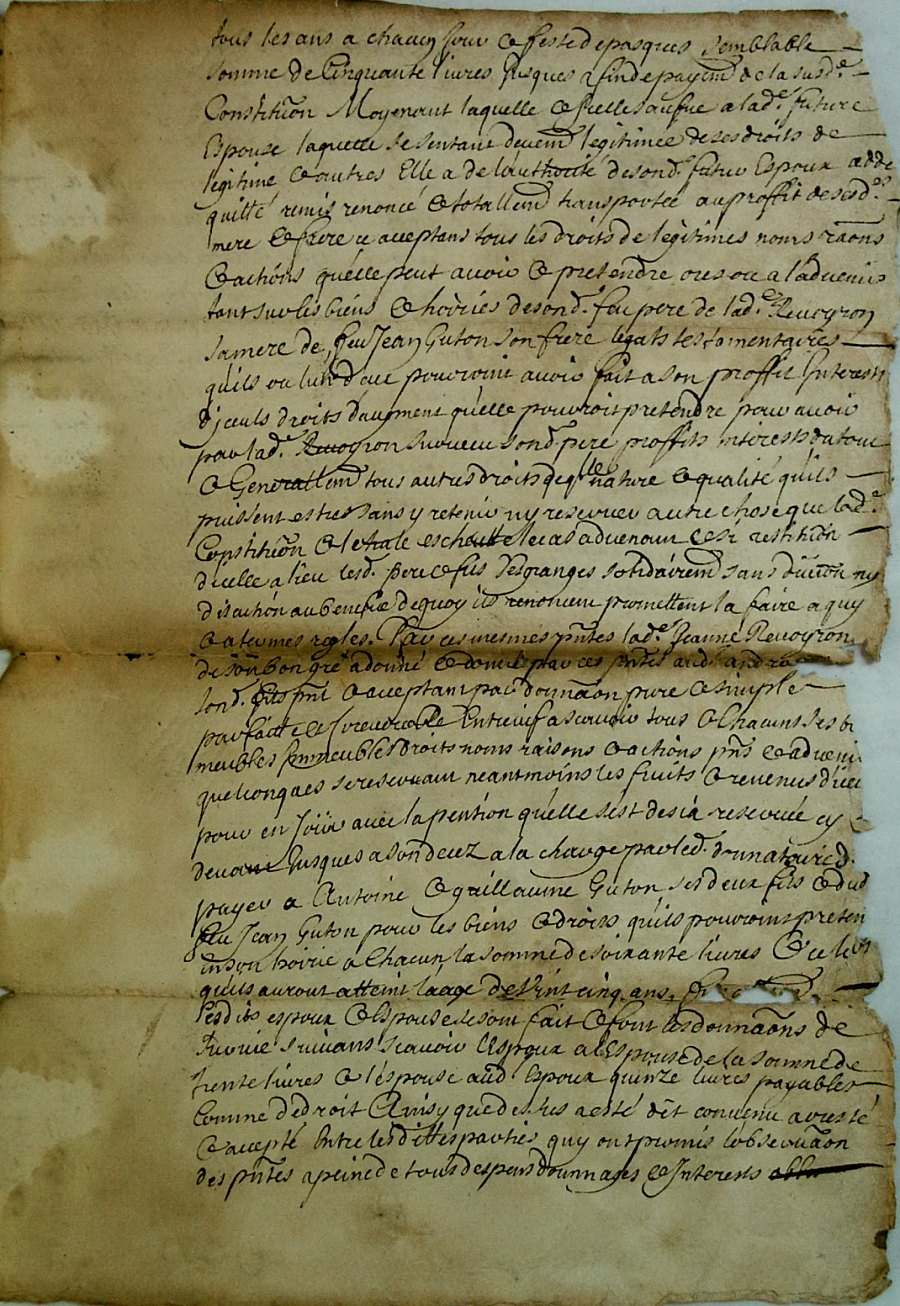 tous les ans a chacun jour & feste de pasques semblable
somme de Cinquante livres jusques a fin de payem^t de la susd^e
Constitu͠on Moyenant laquelle a lad^e future
Espouse laquelle se sentant devem^t legitimée de ses droits de
legitime & autres Elle a de l'authorité de sond^t futur Espoux cedé
quitté remis renoncé & totallem^t transportée au proffit de sesd^s
mere & frere ce acceptans tous les droits de legitimes noms rãons
& actions qu'elle peut avoir & pretendre ores ou a l'advenir
tant sur les biens & hoiries de sond^t feu pere de lad^e Revoyron
sa mere de feu Jean Guton son frere legats testamentaires
qu'ils ou l'un d'eux pourroint avoir fait a son proffit Interests
d'jceuls droits d'augment qu'elle pourroit pretendre pour avoir
par lad^e Revoyron survecu sond^t pere proffits interests du tout
& Generallem^t tous autres droits de q^lle nature & qualité qu'ils
puissent estre sans y retenir ny reserver autre chose que lad^e
Constitu͠on & le cas advenant & si restitu͠on
d'icelle a lieu lesd^s pere & fils Desgranges solidairem^t sans division ny
discution au benefice de quoy ils renoncent promettent la faire a quy
& a termes regles. Par ces mesmes p͠ntes lad^e Jeanne Revoyron
de son bon gré a donné & donne par ces p͠ntes aud^t André
sond^t p͠nt & acceptant par dona͠on pure & simple
parfaite & Irrevocable Entre vifs a scavoir tous & chacuns ses bi
meubles Immeubles droits noms raisons & actions p͠ns & adveni
quelconques se reservant neantmoins les fruits & revenus d'ice
pour en Joüir avec la pention qu'elle s'est desia reservée cy
devant jusques a son decez a la charge par led^t donnataire d
payer a Antoine & guillaume Guton ses deux fils & dud
feu Jean Guton pour les biens & droits qu'ils pourroint preten
en son hoirie a Chacun la somme de soixante livres & ce lors
qu'ils auront atteint l'aage de Vint cinq ans,
Lesdits espoux & Espouse se sont fait & font les donna͠ons de
survie suivans scavoir l'Espoux a l'Espouse de la somme de
trente livres & l'espouse aud^t Espoux quinze livres payables
Comme de droit Ainsy que dessus a esté dit convenu arresté
& accepté Entre lesdittes parties quy ont promis l'observa͠on
des p͠ntes a peine de tous despens dommages & Interests